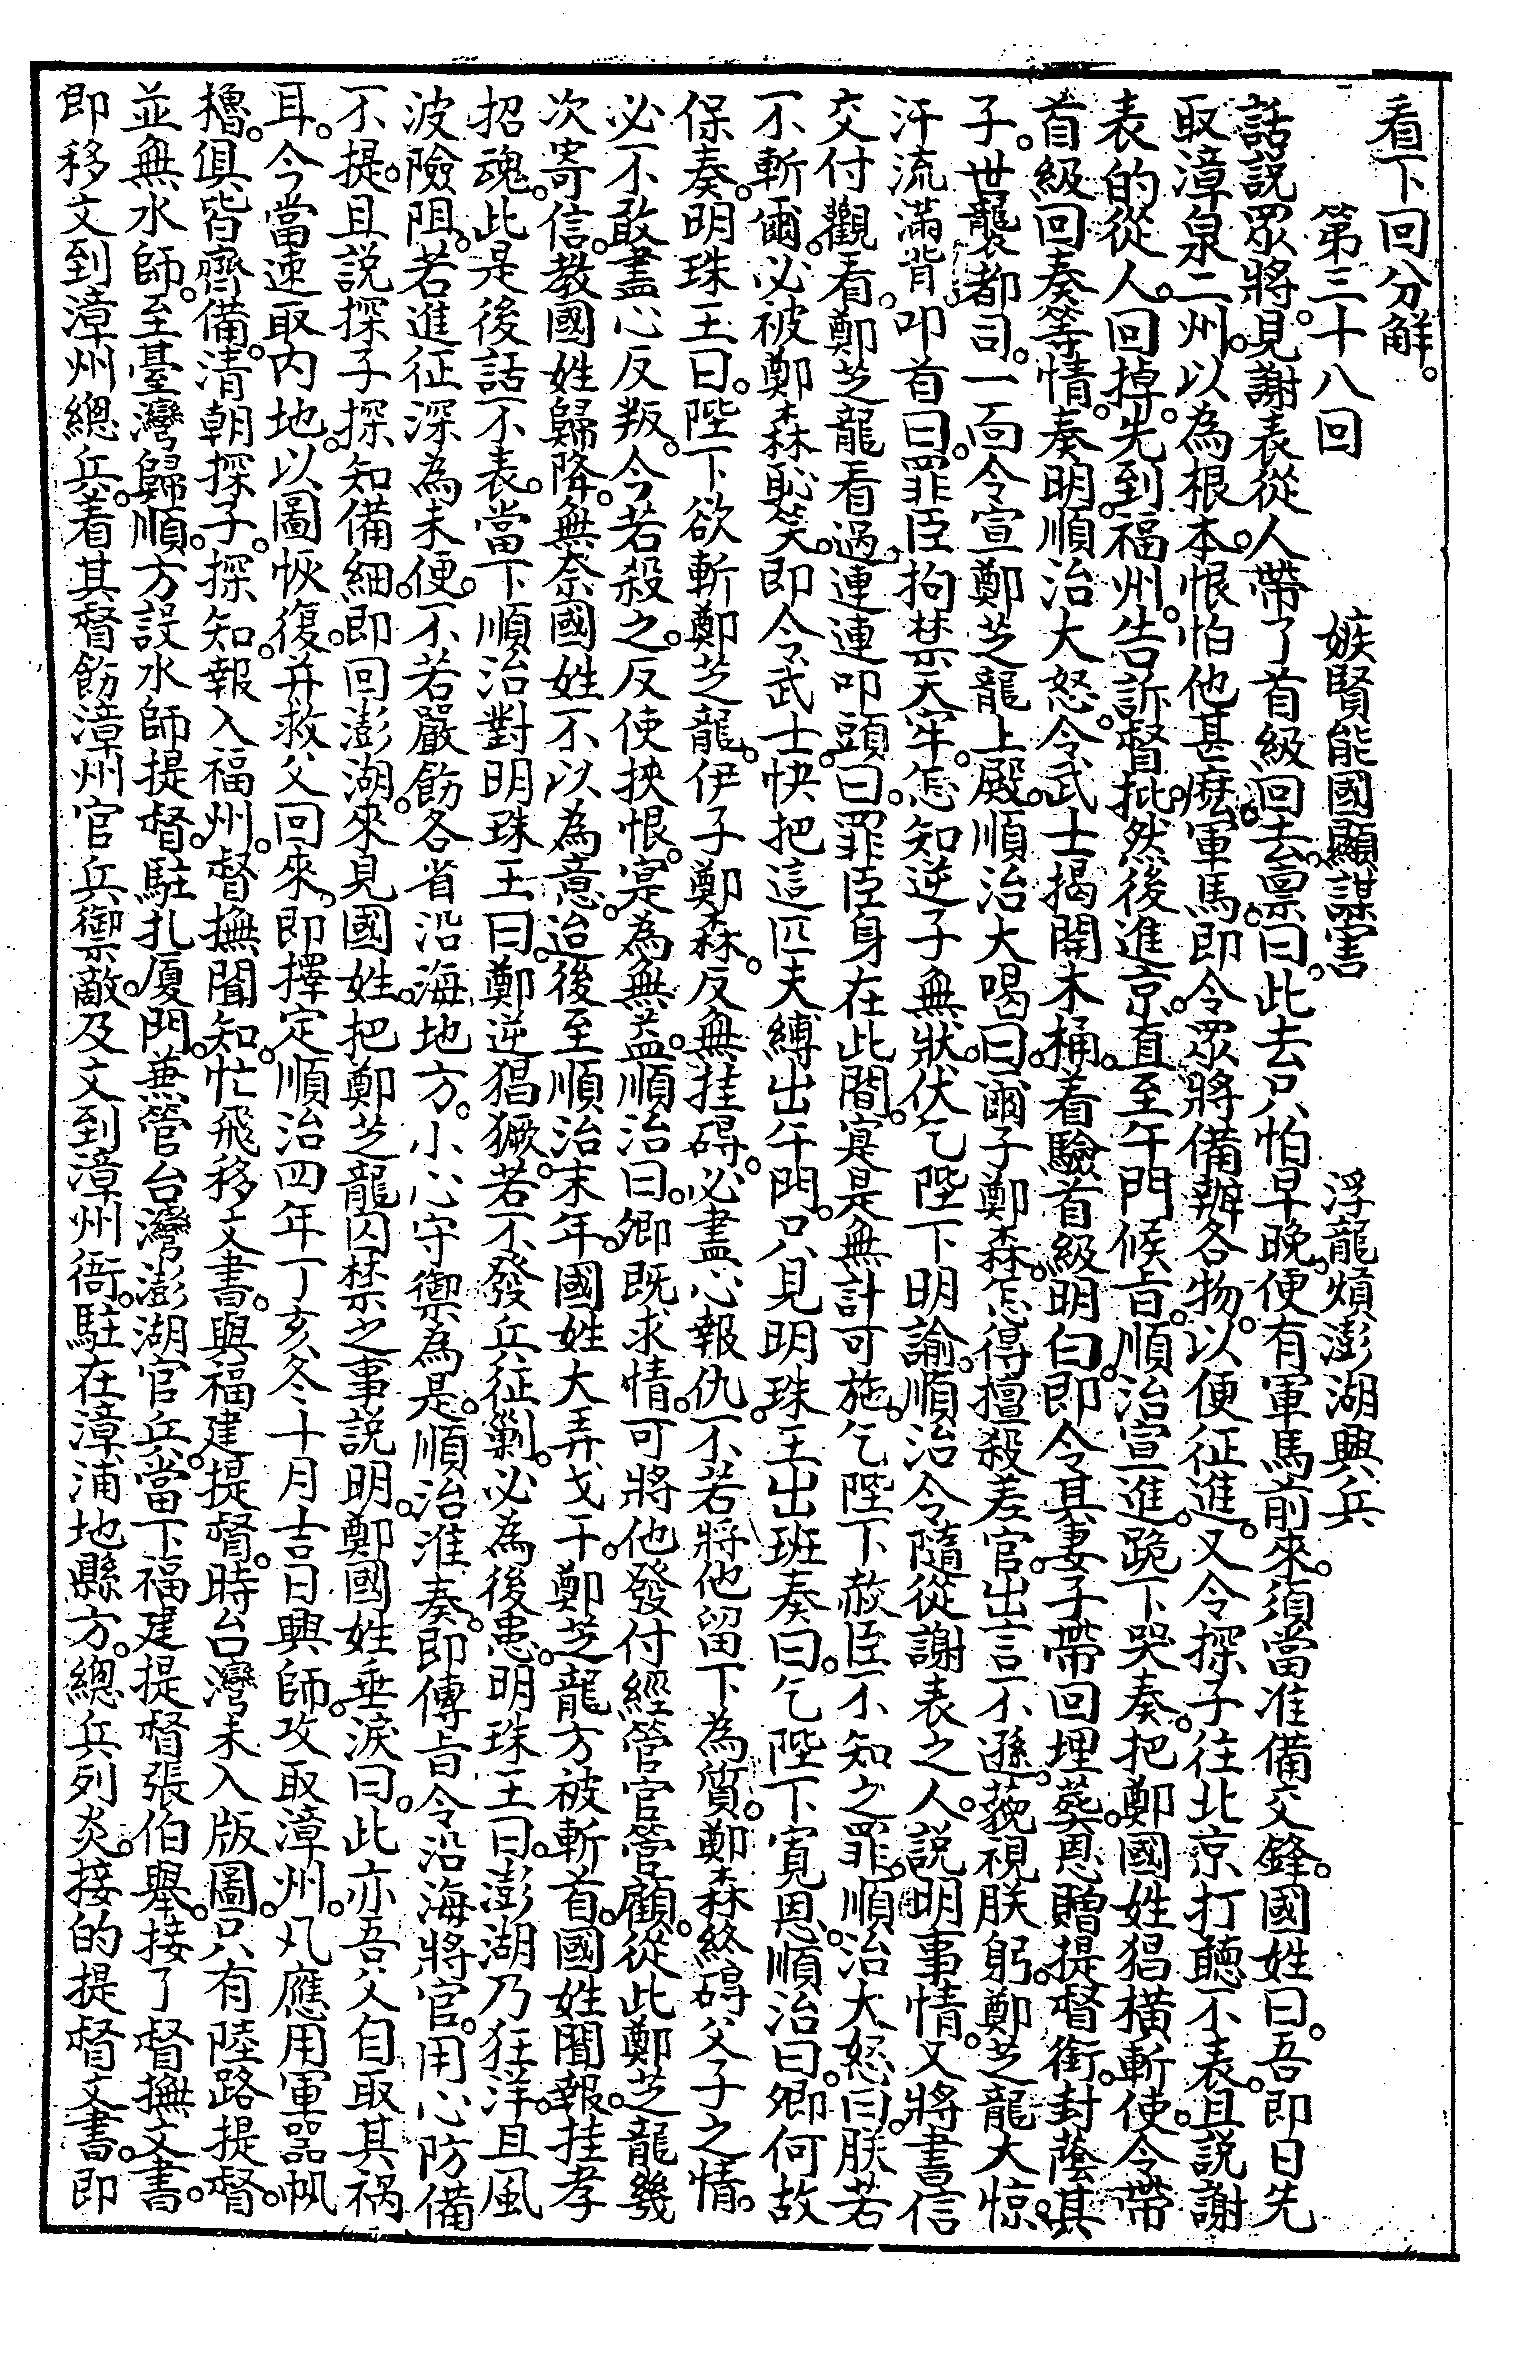 看下回分解。
第三十八回 嫉賢能國顯謀害 浮龍煩澎湖興兵
話説眾將。見謝表從人帶了首級回去。禀曰。此去只怕早晚。便有軍馬前來。須當准備交鋒。國姓曰。吾即日先
取漳泉二州。以為根本。恨怕他甚麽軍馬。即令眾將備辦各物。以便征進。又令探子往北京打聽。不表。且説謝
表的從人。回掉。先到福州。告訴督批。然後進京。直至午門候旨。順治宣進。跪下哭奏。把鄭國姓猖橫。斬使。令帶
首級回奏等情。奏明。順治大怒。令武士揭開木桶。着驗首級明白。即令其妻子帶回埋葬。恩贈提督銜。封蔭其
子。世襲都司。一面令宣鄭芝龍上殿。順治大喝曰。爾子鄭森。怎得擅殺差官。出言不遜。藐視朕躬。鄭芝龍大惊。
汗流滿背。叩首曰。罪臣拘禁天牢。怎知逆子無狀。伏乞陛下明諭。順治令隨從謝表之人。説明事情。又將書信
交付觀看。鄭芝龍看過。連連叩頭曰。罪臣身在此間。寔是無計可施。乞陛下赦臣不知之罪。順治大怒曰。朕若
不斬爾。必被鄭森恥笑。即令武士。快把這匹夫縛出午門。只見明珠王出班奏曰。乞陛下寛恩。順治曰。卿何故
保奏。明珠王曰。陛下欲斬鄭芝龍。伊子鄭森。反無挂碍。必盡心報仇。不若將他留下為質。鄭森終碍父子之情。
必不敢盡心反叛。今若殺之。反使挾恨。寔為無益。順治曰。卿既求情。可將他發付經管官管顧。從此鄭芝龍幾
次寄信。教國姓歸降。無奈國姓不以為意。迨後至順治末年。國姓大弄戈干。鄭芝龍方被斬首。國姓聞報。挂孝
招魂。此是後話不表。當下順治對明珠王曰。鄭逆猖獗。若不發兵征剿。必為後患。明珠王曰。澎湖乃狂洋。且風
波險阻。若進征深為未便。不若嚴飭各省沿海地方。小心守禦為是。順治准奏。即傳旨令沿海將官。用心防備
不提。且説探子探知備細。即回澎湖。來見國姓。把鄭芝龍囚禁之事説明。鄭國姓垂淚曰。此亦吾父自取其祸
耳。今當速取内地。以圖恢復。并救父回來。即擇定順治四年丁亥冬十月吉日興師。攻取漳州。凡應用軍器帆
櫓。俱皆齊備。清朝探子。探知。報入福州。督撫聞知。忙飛移文書。與福建提督。時台灣未入版圖。只有陸路提督。
並無水師。至臺灣歸順。方設水師提督。駐扎厦門。兼管台灣澎湖官兵。當下福建提督張伯舉。接了督撫文書。
即移文到漳州總兵。着其督飭漳州官兵禦敵。及文到漳州衙。駐在漳浦地縣方。總兵列炎。接的提督文書。即